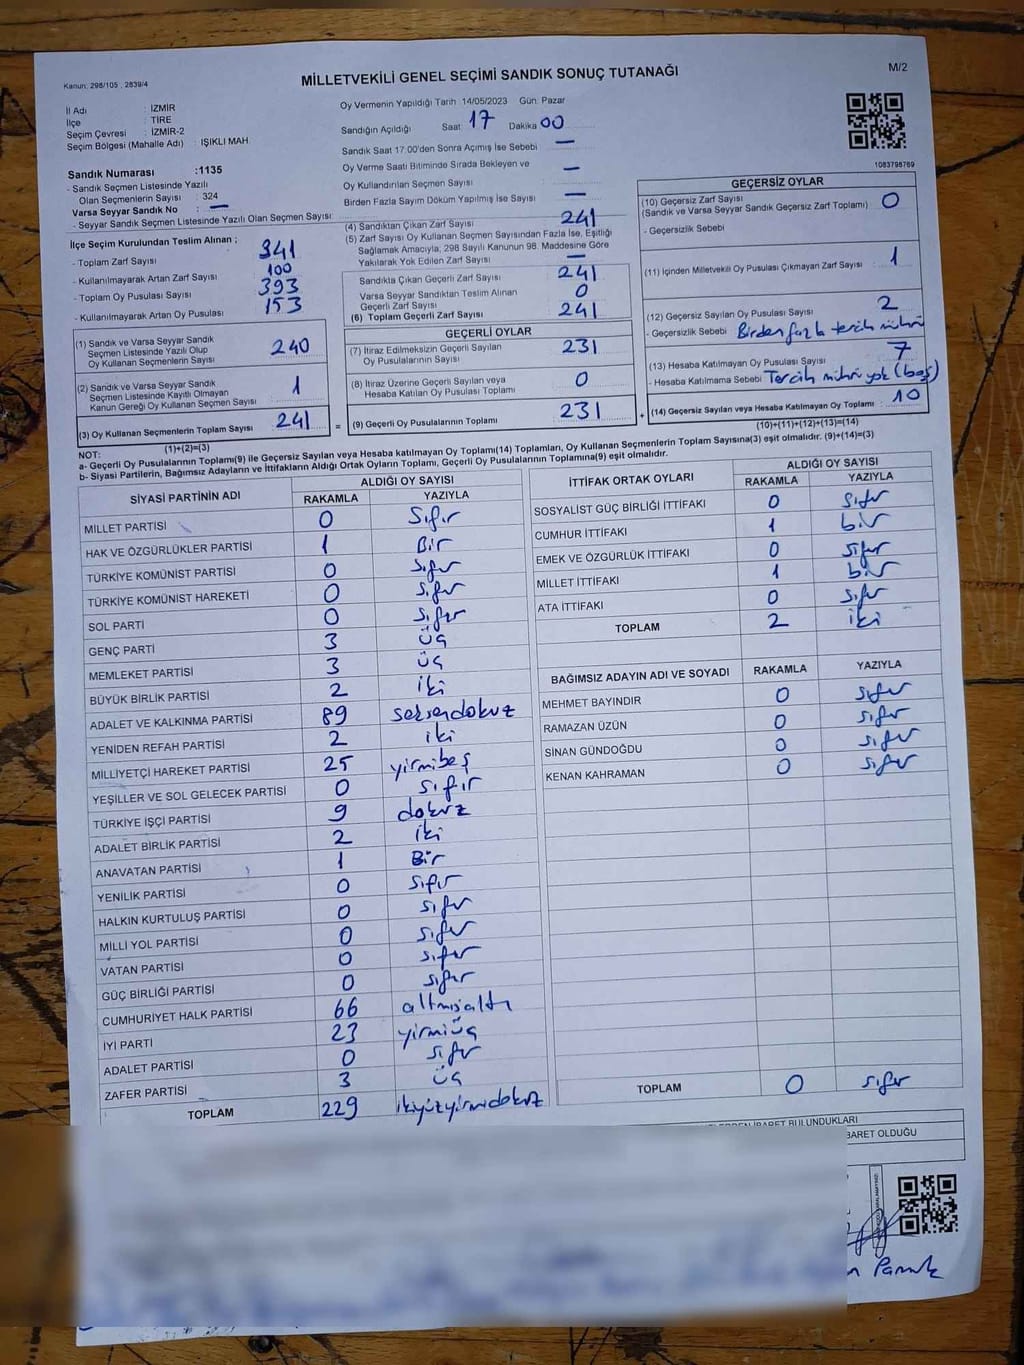 Kanun: 298/105 , 2839/4
MİLLETVEKİLİ GENEL SEÇİMİ SANDIK SONUÇ TUTANAĞI
M/2
İl Adı : İZMİR
İlçe : TİRE
Seçim Çevresi : İZMİR-2
Seçim Bölgesi (Mahalle Adı) IŞIKLI MAH
Oy Vermenin Yapıldığı Tarih 14/05/2023 Gün: Pazar
Sandığın Açıldığı Saat 17 Dakika 00
Sandık Saat 17:00'den Sonra Açımış İse Sebebi —
Oy Verme Saati Bitiminde Sırada Bekleyen ve
Oy Kullandırılan Seçmen Sayısı —
Birden Fazla Sayım Döküm Yapılmış İse Sayısı —
1083798769
Sandık Numarası :1135
- Sandık Seçmen Listesinde Yazılı
Olan Seçmenlerin Sayısı : 324
Varsa Seyyar Sandık No : —
- Seyyar Sandık Seçmen Listesinde Yazılı Olan Seçmen Sayısı:
İlçe Seçim Kurulundan Teslim Alınan ;
- Toplam Zarf Sayısı : 341
- Kullanılmayarak Artan Zarf Sayısı : 100
- Toplam Oy Pusulası Sayısı : 393
- Kullanılmayarak Artan Oy Pusulası : 153
(1) Sandık ve Varsa Seyyar Sandık
Seçmen Listesinde Yazılı Olup
Oy Kullanan Seçmenlerin Sayısı : 240
(2) Sandık ve Varsa Seyyar Sandık
Seçmen Listesinde Kayıtlı Olmayan
Kanun Gereği Oy Kullanan Seçmen Sayısı : 1
(3) Oy Kullanan Seçmenlerin Toplam Sayısı : 241
(1)+(2)=(3)
(4) Sandıktan Çıkan Zarf Sayısı : 241
(5) Zarf Sayısı Oy Kullanan Seçmen Sayısından Fazla İse, Eşitliği
Sağlamak Amacıyla, 298 Sayılı Kanunun 98. Maddesine Göre
Yakılarak Yok Edilen Zarf Sayısı : —
Sandıkta Çıkan Geçerli Zarf Sayısı : 241
Varsa Seyyar Sandıktan Teslim Alınan
Geçerli Zarf Sayısı : 0
(6) Toplam Geçerli Zarf Sayısı : 241
GEÇERLİ OYLAR
(7) İtiraz Edilmeksizin Geçerli Sayılan
Oy Pusulalarının Sayısı : 231
(8) İtiraz Üzerine Geçerli Sayılan veya
Hesaba Katılan Oy Pusulası Toplamı : 0
= (9) Geçerli Oy Pusulalarının Toplamı : 231
GEÇERSİZ OYLAR
(10) Geçersiz Zarf Sayısı
(Sandık ve Varsa Seyyar Sandık Geçersiz Zarf Toplamı) : 0
- Geçersizlik Sebebi
(11) İçinden Milletvekili Oy Pusulası Çıkmayan Zarf Sayısı : 1
(12) Geçersiz Sayılan Oy Pusulası Sayısı : 2
- Geçersizlik Sebebi Birden fazla tercih mührü
(13) Hesaba Katılmayan Oy Pusulası Sayısı : 7
- Hesaba Katılmama Sebebi Tercih mührü yok (boş)
+ (14) Geçersiz Sayılan veya Hesaba Katılmayan Oy Toplamı : 10
(10)+(11)+(12)+(13)=(14)
NOT:
a- Geçerli Oy Pusulalarının Toplamı(9) ile Geçersiz Sayılan veya Hesaba katılmayan Oy Toplamı(14) Toplamları, Oy Kullanan Seçmenlerin Toplam Sayısına(3) eşit olmalıdır. (9)+(14)=(3)
b- Siyasi Partilerin, Bağımsız Adayların ve İttifakların Aldığı Ortak Oyların Toplamı, Geçerli Oy Pusulalarının Toplamına(9) eşit olmalıdır.
SİYASİ PARTİNİN ADI ALDIĞI OY SAYISI
RAKAMLA YAZIYLA
MİLLET PARTİSİ 0 Sıfır
HAK VE ÖZGÜRLÜKLER PARTİSİ 1 Bir
TÜRKİYE KOMÜNİST PARTİSİ 0 sıfır
TÜRKİYE KOMÜNİST HAREKETİ 0 sıfır
SOL PARTİ 0 sıfır
GENÇ PARTİ 3 üç
MEMLEKET PARTİSİ 3 üç
BÜYÜK BİRLİK PARTİSİ 2 iki
ADALET VE KALKINMA PARTİSİ 89 seksendokuz
YENİDEN REFAH PARTİSİ 2 iki
MİLLİYETÇİ HAREKET PARTİSİ 25 yirmibeş
YEŞİLLER VE SOL GELECEK PARTİSİ 0 sıfır
TÜRKİYE İŞÇİ PARTİSİ 9 dokuz
ADALET BİRLİK PARTİSİ 2 iki
ANAVATAN PARTİSİ 1 Bir
YENİLİK PARTİSİ 0 sıfır
HALKIN KURTULUŞ PARTİSİ 0 sıfır
MİLLİ YOL PARTİSİ 0 sıfır
VATAN PARTİSİ 0 sıfır
GÜÇ BİRLİĞİ PARTİSİ 0 sıfır
CUMHURİYET HALK PARTİSİ 66 altmışaltı
İYİ PARTİ 23 yirmiüç
ADALET PARTİSİ 0 sıfır
ZAFER PARTİSİ 3 üç
TOPLAM 229 ikiyüzyirmidokuz
İTTİFAK ORTAK OYLARI ALDIĞI OY SAYISI
RAKAMLA YAZIYLA
SOSYALİST GÜÇ BİRLİĞİ İTTİFAKI 0 sıfır
CUMHUR İTTİFAKI 1 bir
EMEK VE ÖZGÜRLÜK İTTİFAKI 0 sıfır
MİLLET İTTİFAKI 1 bir
ATA İTTİFAKI 0 sıfır
TOPLAM 2 iki
BAĞIMSIZ ADAYIN ADI VE SOYADI RAKAMLA YAZIYLA
MEHMET BAYINDIR 0 sıfır
RAMAZAN ÜZÜN 0 sıfır
SİNAN GÜNDOĞDU 0 sıfır
KENAN KAHRAMAN 0 sıfır
TOPLAM 0 sıfır
İBARET BULUNDUKLARI
BARET OLDUĞU